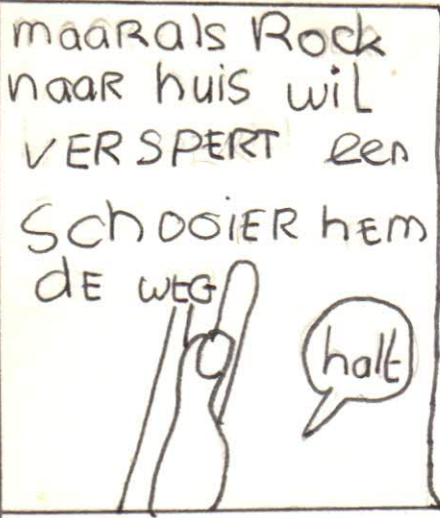 maarals Rock
naar huis wil
VERSPERT een
SchOOiER hEM
dE wEG
halt